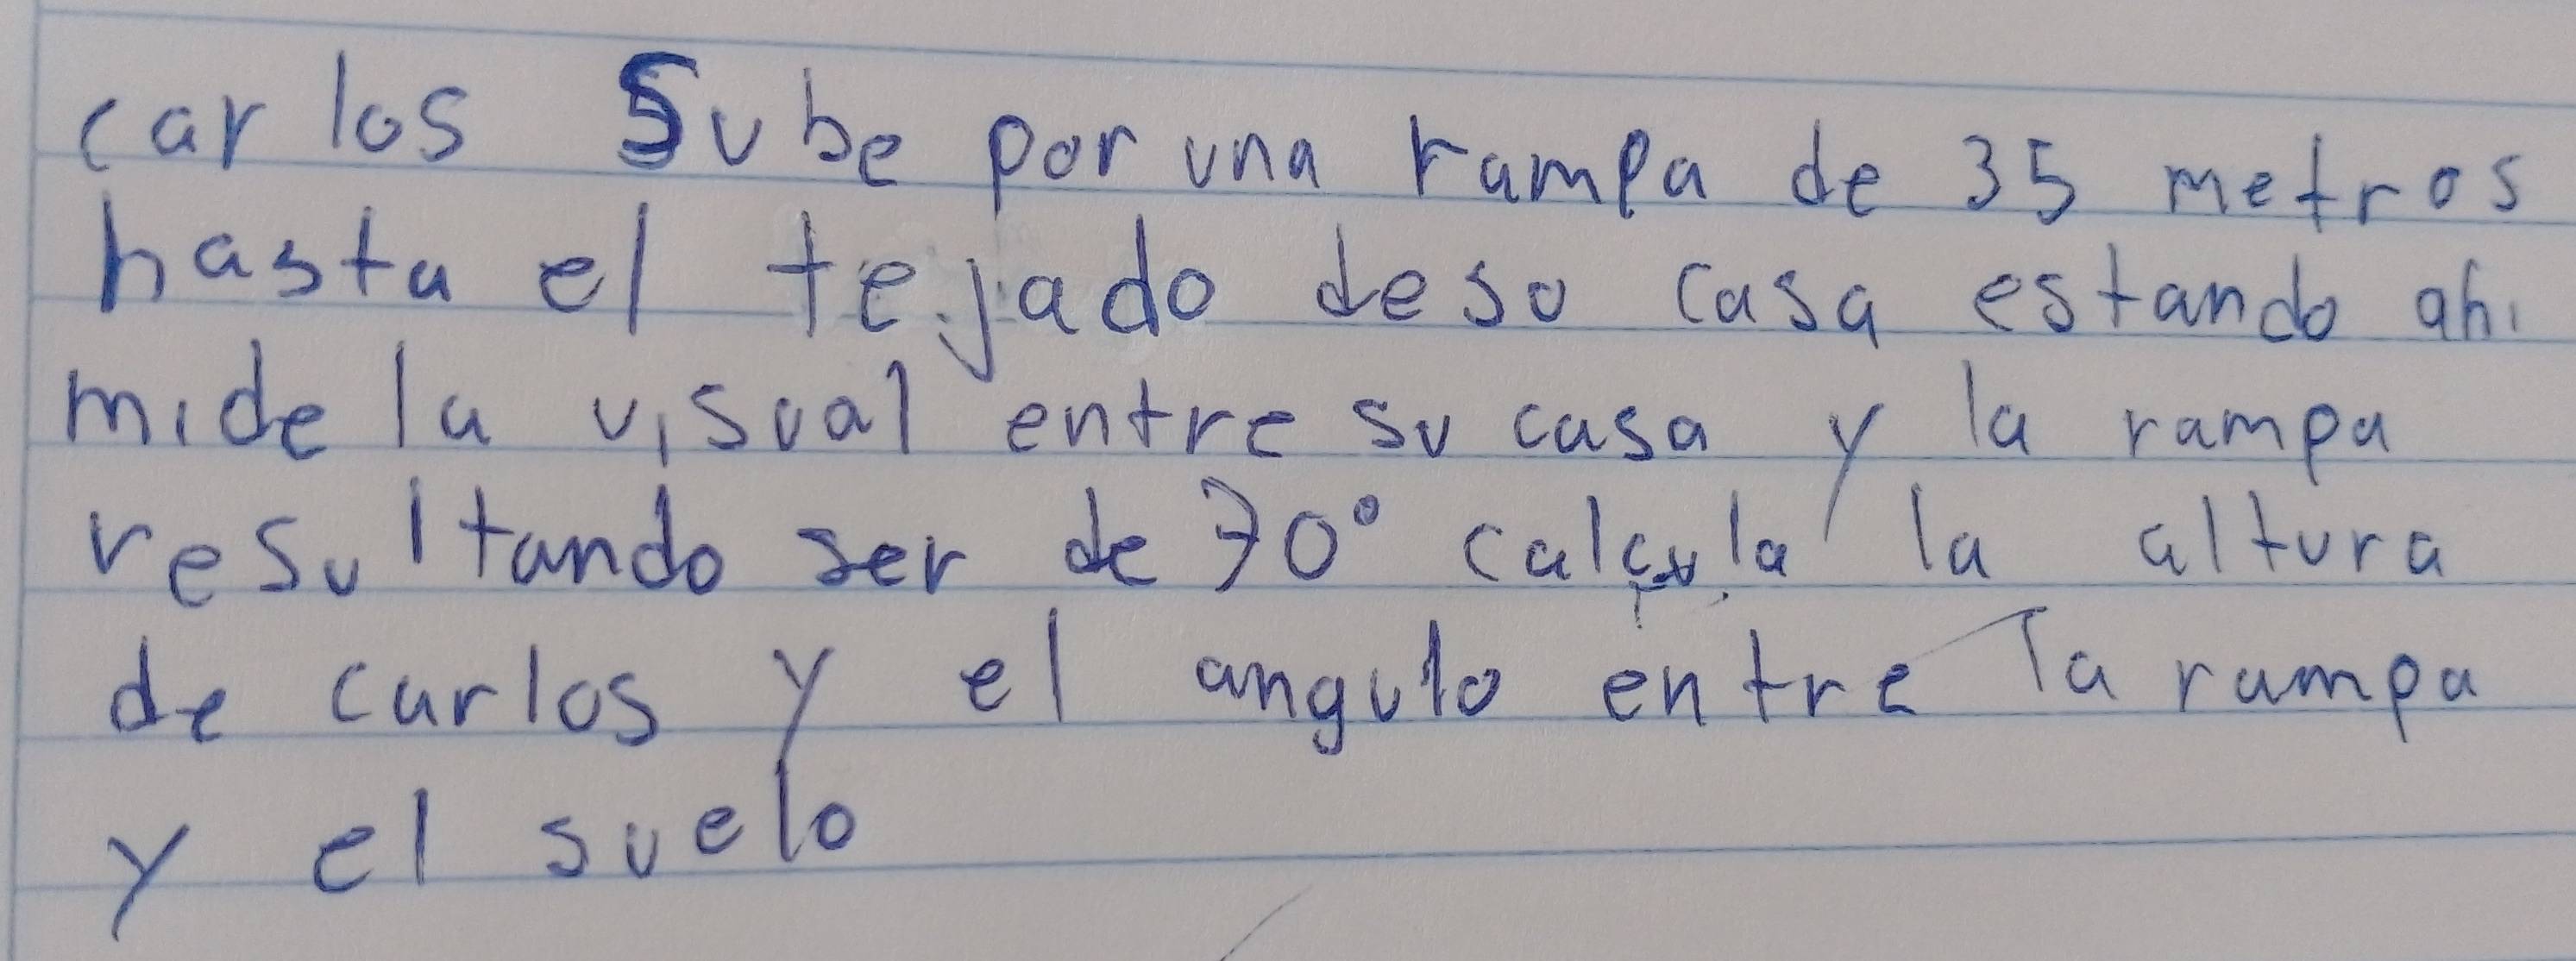 carlos Sube por una rampa de 35 metros
hasta el tejado de su casa estando ahi
mide la visual entre su casa y la rampa
resultando ser de 70° calcula la altura
de carlos y el angulo entre la rampa
y el suelo